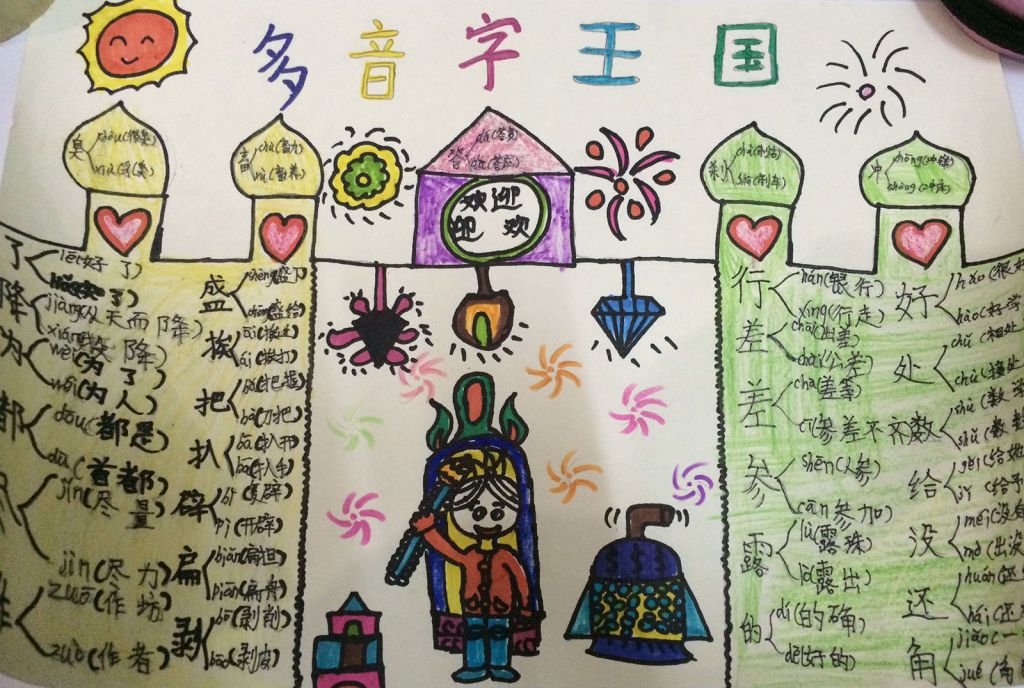 多音字王国
臭
xiù(
畜
chù(畜力)
xù(畜养)
答
dá(答复)
dā(答应)
欢迎
迎欢
刹
chà(
shā(刹车)
冲
chōng(
chòng(
了
le(好了)
降
jiàng(从天而降)
xiáng(投降)
为
wèi(为了)
wéi(为人)
都
dōu(都是)
dū(首都)
jǐn(尽量)
jìn(尽力)
zuō(作坊)
zuò(作者)
盛
shèng(盛
chéng(盛给
挨
āi(挨近)
ái(挨打)
把
bǎ(把握)
bà(刀把)
扒
bā(扒开)
pá(扒手)
辟
bì(复辟)
pì(开辟)
扁
biǎn(扁担)
piān(扁舟)
剥
bō(剥削)
bāo(剥皮)
行
hán(银行)
xíng(行走)
差
chāi(出差)
chāi(公差)
差
chā(差等)
cī(参差不齐)
参
shēn(人参)
cān(参加)
露
lù(露珠)
lù(露出)
的
dí(的确)
de(好的)
好
hǎo(很好
hào(好学
处
chǔ(相处
chù(
数
shù(数学
shǔ(数数
给
gěi(给她
jǐ(给予
没
méi(没有
mò(出没
还
huán(还
hái(还
角
jiǎo(一
jué(角